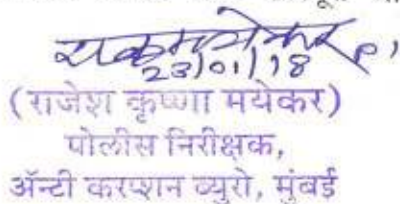 23/01/18
(राजेश कृष्णा मयेकर)
पोलीस निरीक्षक,
ॲन्टी करप्शन ब्युरो, मुंबई